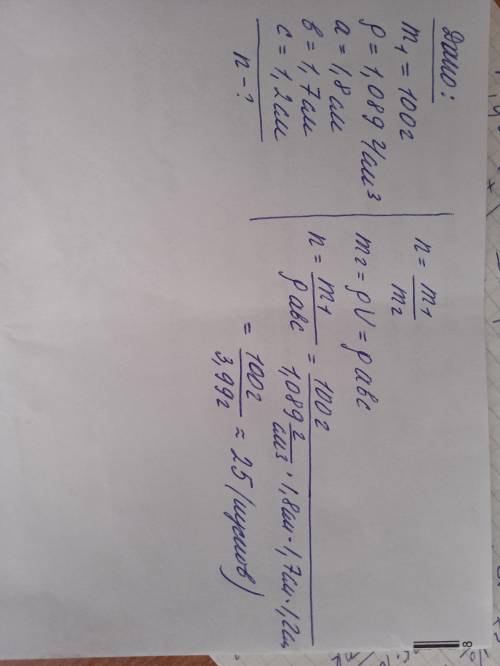 Дано:
m₁ = 100г
ρ = 1,089 г/см³
a = 1,8 см
в = 1,7 см
c = 1,2 см
n - ?
n = m₁/m₂
m₂ = ρV = ρавс
n = m₁/ρавс = 100г/(1,089 г/см³ · 1,8см · 1,7см · 1,2см) =
= 100г/3,99г = 25 (кусков)
8